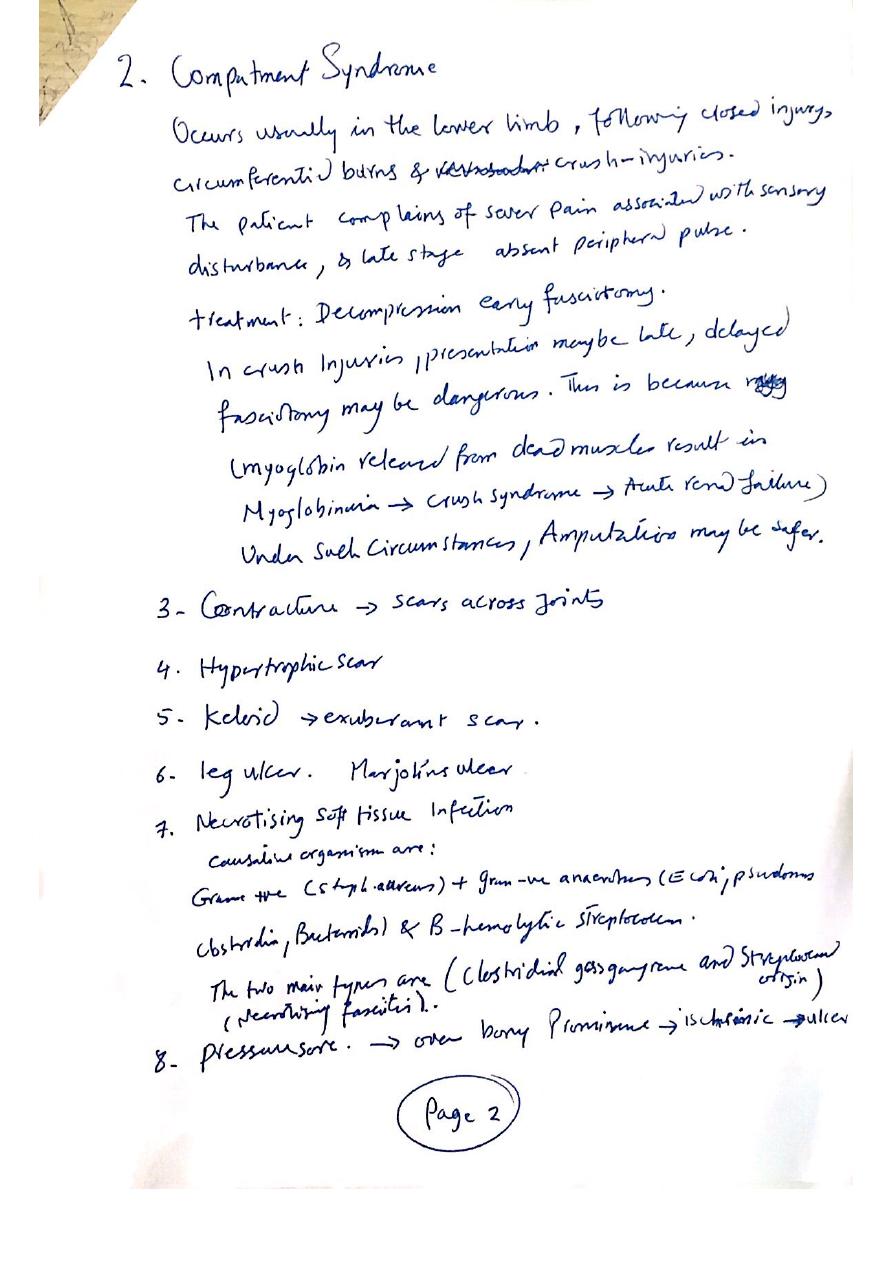 2. Compatment Syndrome
Occurs usually in the lower limb, following closed injury,
circumferential burns & crush-injuries.
The patient complains of sever pain associated with sensory
disturbance, & late stage absent peripheral pulse.
treatment: Decompression early fasciotomy.
In crush Injuries, presentation maybe late, delayed
fasciotomy may be dangerous. This is because
(myoglobin released from dead muscles result in
Myoglobinuria → Crush syndrome → Acute renal failure)
Under Such Circumstances, Amputation may be safer.
3- Contracture → scars across Joints
4. Hypertrophic scar
5- Keloid → exuberant scar.
6- leg ulcer. Marjolins ulcer
7. Necrotising Soft tissue Infection
Causative organism are:
Grame +ve (staph.aureus) + gram -ve anaerobes (E Coli, psudomos
Clostridia, Bacteroids) & B-hemolytic streptococcus.
The two main types are (Clostridial gas gangrene and Streptococcal
origin)
(Necrotising fasciitis).
8- Pressure sore. → over bony Prominence → ischemic → ulcer
Page 2